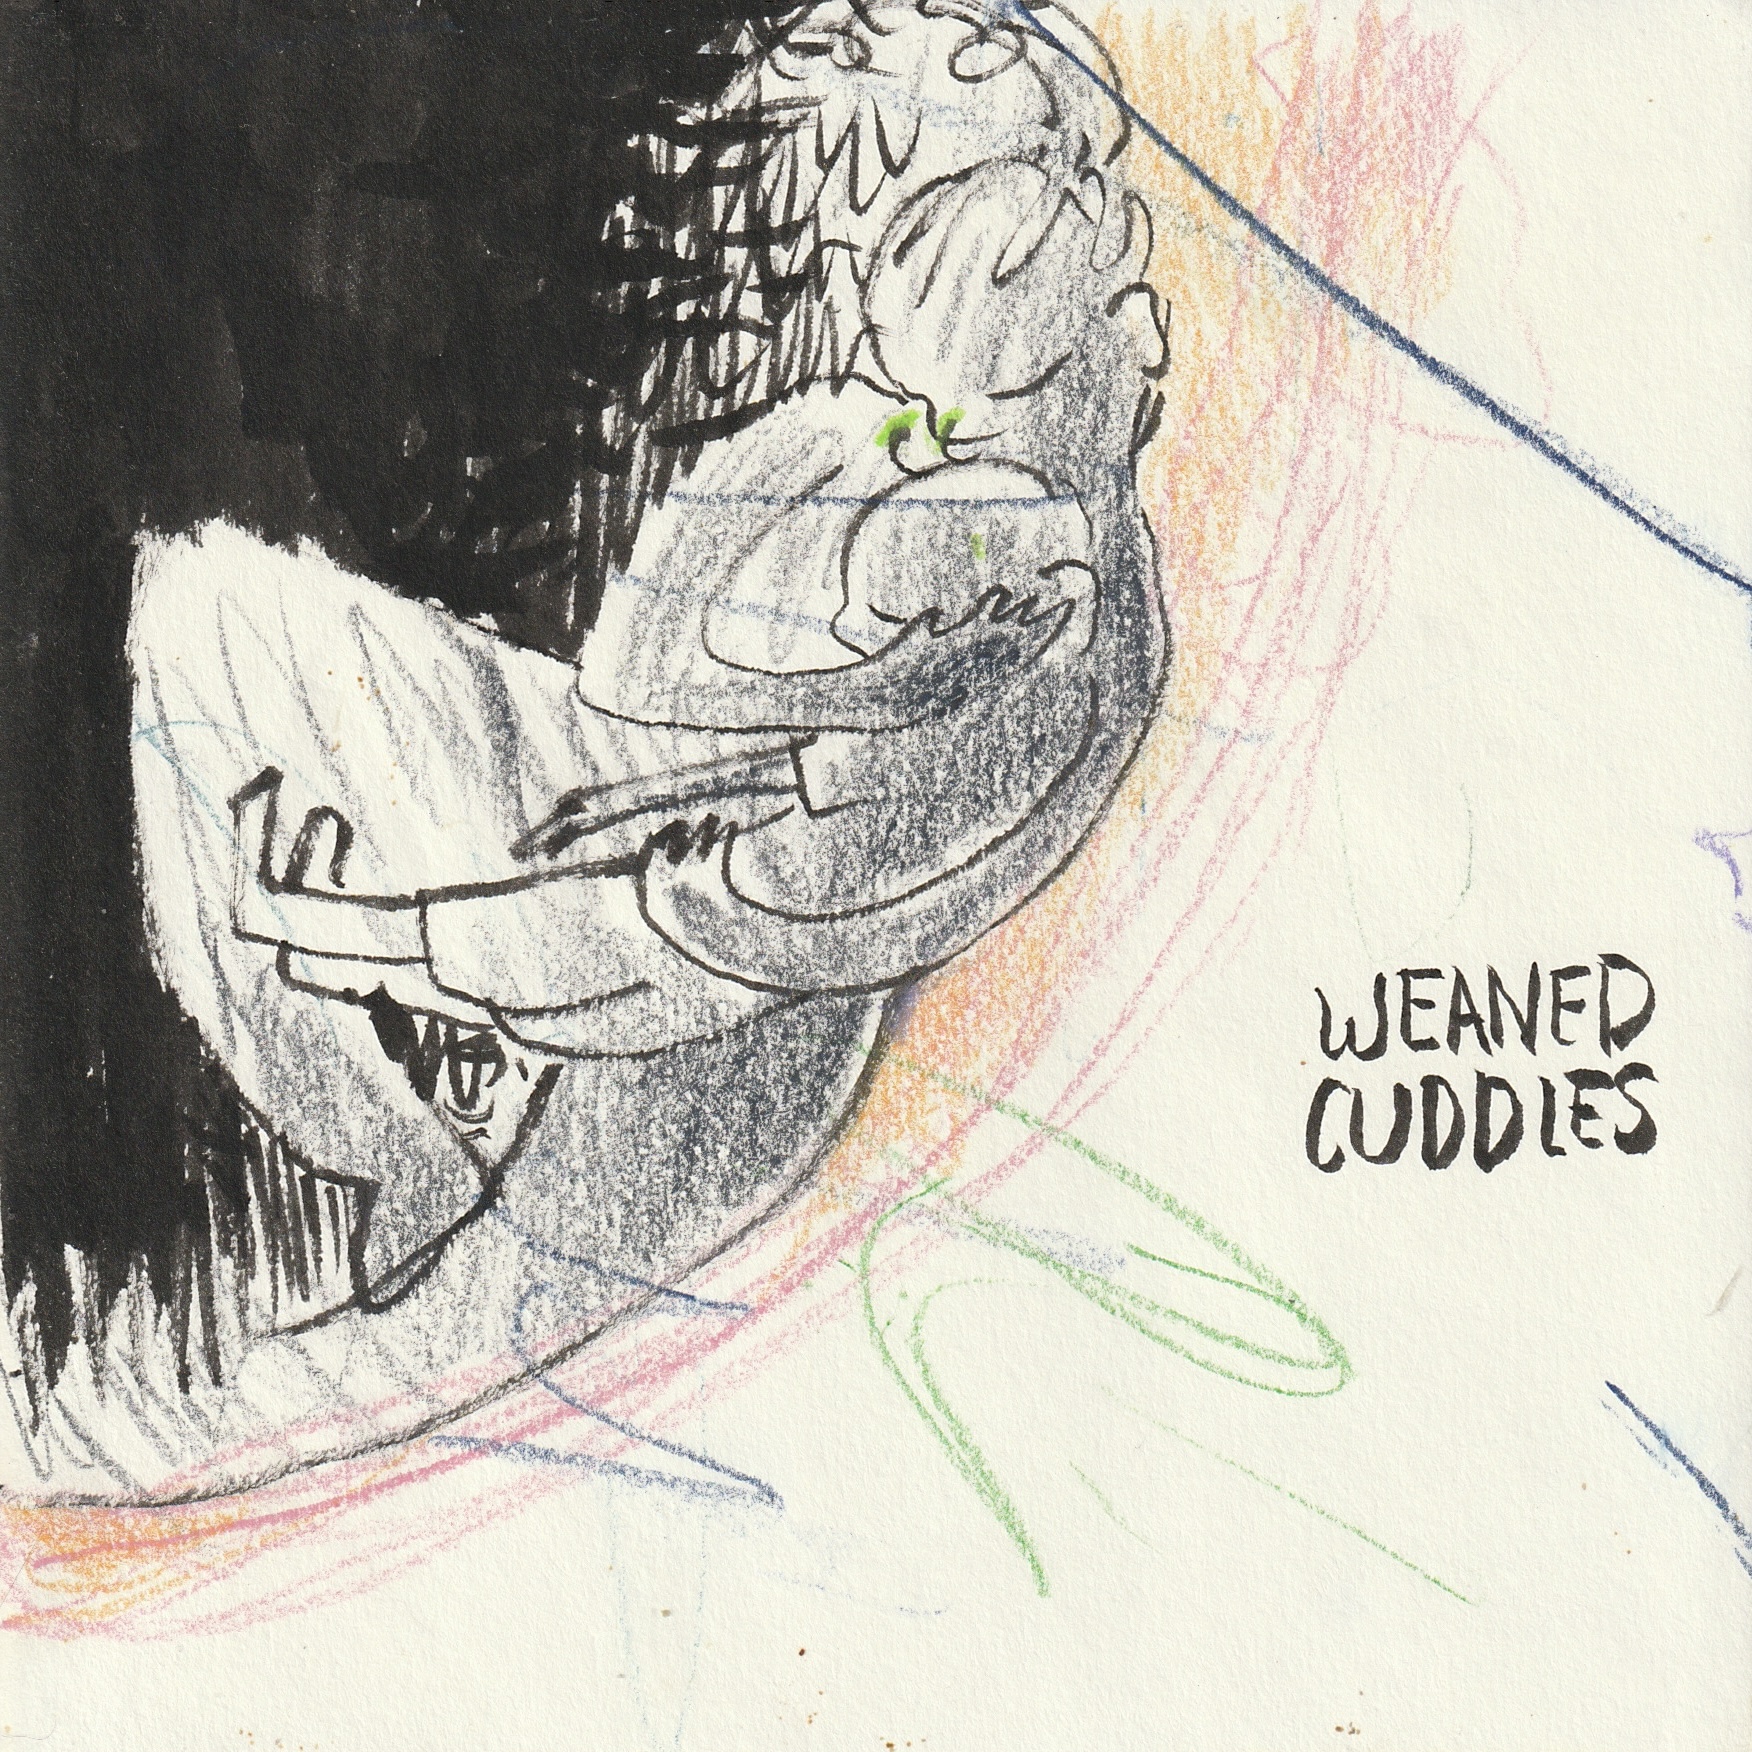 WEANED
CUDDLES